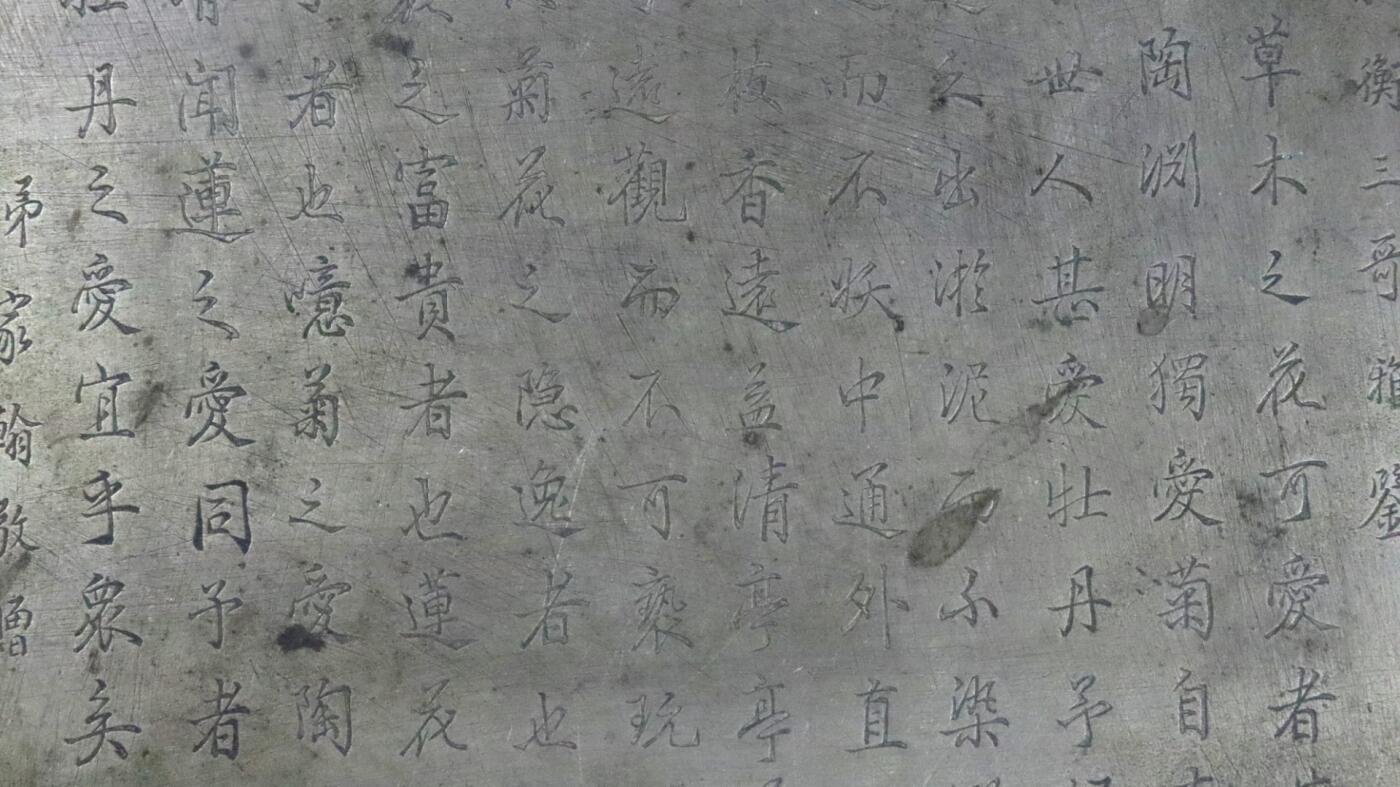 衡三哥雅鑒
草木之花可愛者
陶渕明獨愛菊自
世人甚愛牡丹予
之出淤泥而不染
而不妖中通外直
枝香遠益清亭亭
遠觀而不可褻玩
菊花之隐逸者也
之富貴者也蓮花
者也噫菊之愛陶
聞蓮之愛同予者
丹之愛宜乎眾矣
弟家翰敬贈